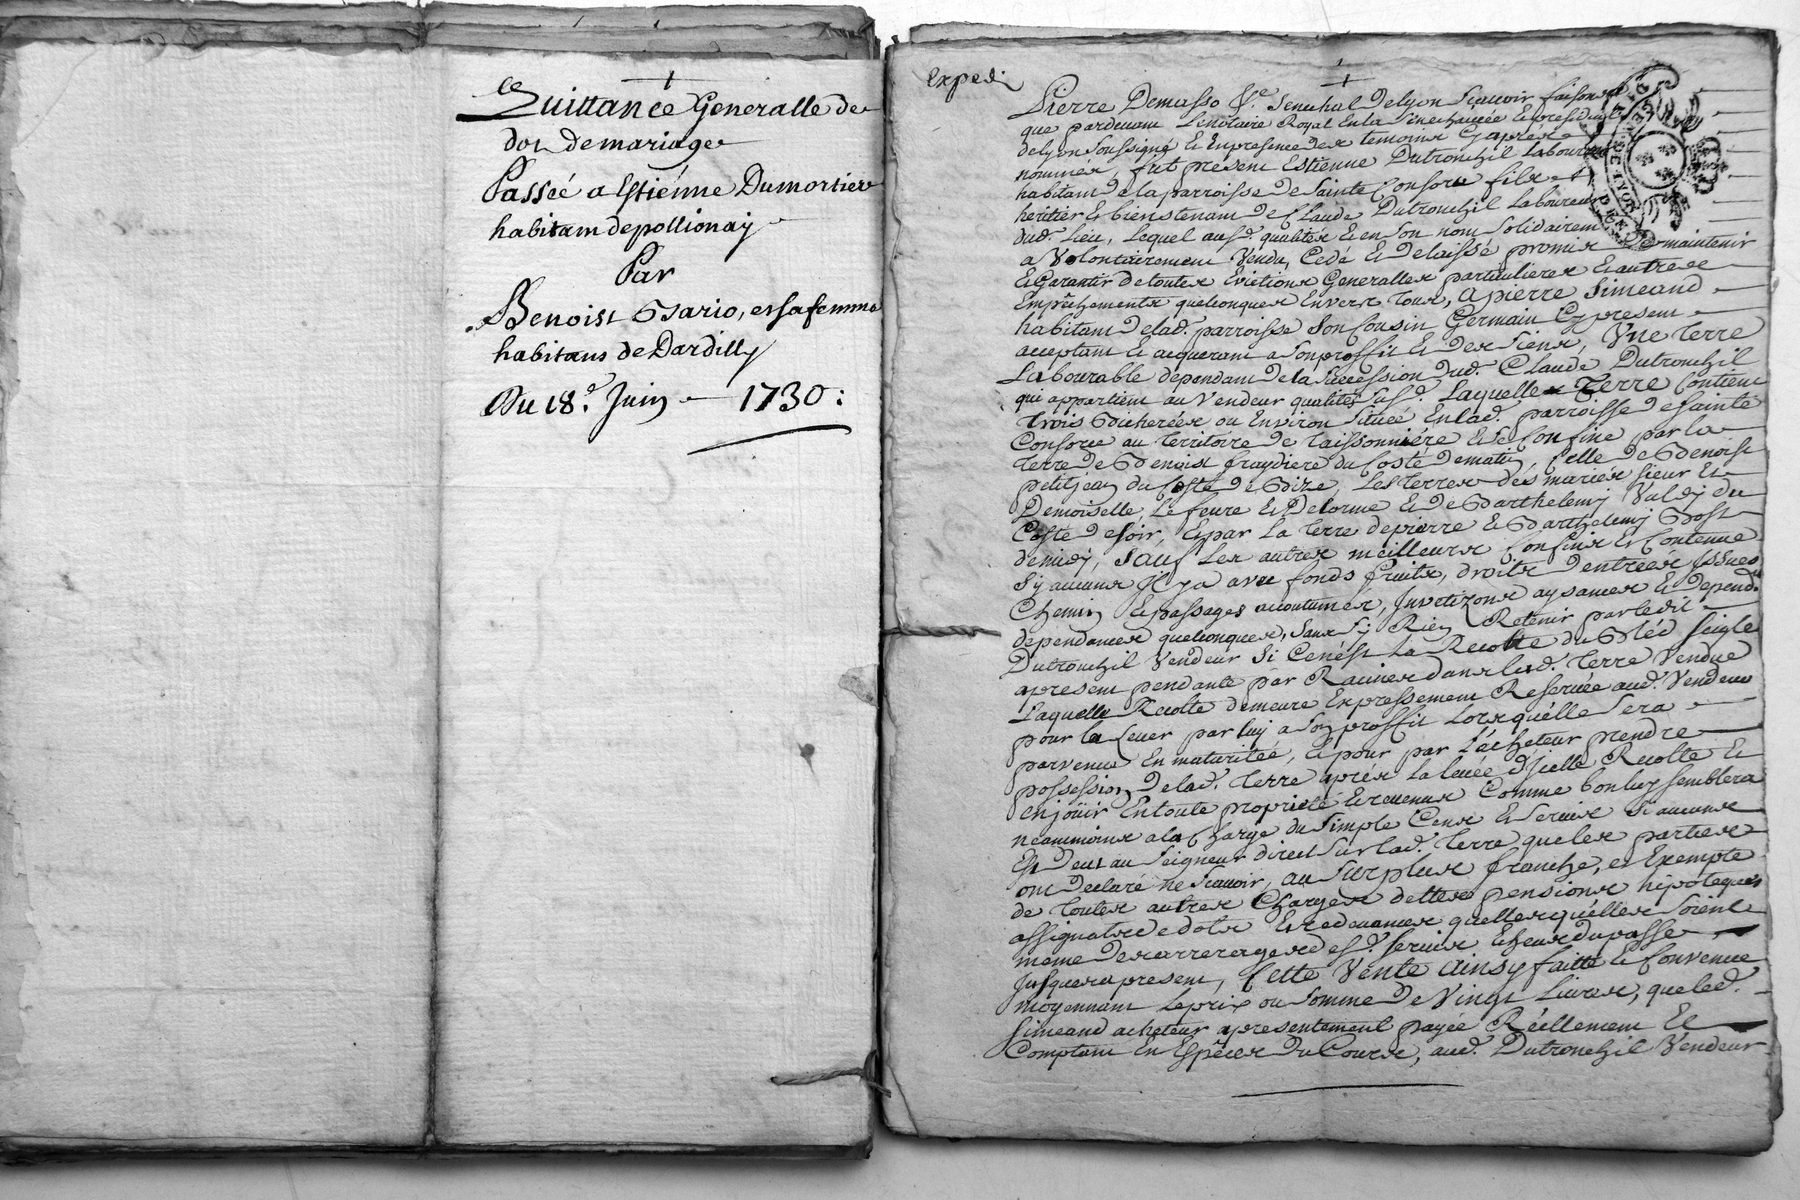 ce
Quittance Generalle de
dot de mariage
Passée a Estiénne Dumortier
habitant de pollionay
Par
Benoist Bsario, et sa femme
habitans de Dardilly
Du 18.e Juin 1730:
Exped.
Pierre Demasso Se. Senechal de Lyon Scavoir faisons
que pardevant Le notaire Royal En la Senechaucée Et presidial
de Lyon Soussigné Et En presence des temoins Cy aprés
nommés, fut present Estienne Dutronchil Laboureur
habitant de la parroisse de Sainte Consorce fils Et
heritier Et bienstenant de Claude Dutronchil Laboureur
dud. Lieu, Lequel ausd. qualités Et en Son nom Solidairement
a Volontairement Vendu, Cedé Et delaissé promis maintenir
Et Garantir de toutes Evictions Generalles particulieres Et autres
Empêchements quelconques Envers tous, A pierre Simeand
habitant de lad. parroisse Son Cousin Germain Cy present
acceptant Et acquerant a Son proffit Et des Siens, Une Terre
Labourable dépendant de la Succession dud. Claude Dutronchil
qui appartient au Vendeur qualités Susd. Laquelle Terre Contient
trois Bicherées ou Environ Située En lad. parroisse de Sainte
Consorce au territoire de taissonniére Et Se Confine par la
terre de Benoist fraydiere du Costé de matin, Celle de Benoist
petitjean du Costé de Bize, Les terres des mariés Sieur Et
Demoiselle Lefeure Et Delorme Et de Barthelemy Valdy du
Costé de Soir, Et par La terre de pierre Et Barthelemy Bost
de midy, Sauf Les autres meilleurs Confins Et Contenue
Sy aucuns Il y a avec fonds fruits, droits d'entrées Issues
Chemin Et passages accoutumés, Jnvetizons aysances Et depend.
dependances quelconques, Sans Sy Rien Retenir par ledit
Dutronchil Vendeur Si Cenést La Recolte du Bléd Seigle
apresent pendante par Racines dans lad. Terre Vendue
Laquelle Recolte demeure Expressement Reservée aud. Vendeur
pour la Lever par luy a Son proffit Lors quélle Sera
parvenue En maturitée, Et pour par L'ácheteur prendre
possession de lad. terre aprés La levée d'Jcelle Recolte Et
en joüir En toute proprieté Et revenus Comme bon luy Semblera
neammoins a la Charge du Simple Cens Et Service Si aucuns
Est Deut au Seigneur direct Sur lad. terre que les parties
ont declaré ne Scavoir, au Surplus franche, et Exempte
de toutes autres Charges dettes pensions hipoteques
assignats de dots Et redevances quelles quélles Soient
meme des arrerages desd. Servis Echeus du passé
Jusques a present, Cette Vente ainsy faitte Et Convenue
moyennant Le prix ou Somme de Vingt Livres, que led.
Simeand acheteur apresentement payée Réellement Et
Comptant En Espéces du Cours, aud. Dutronchil Vendeur